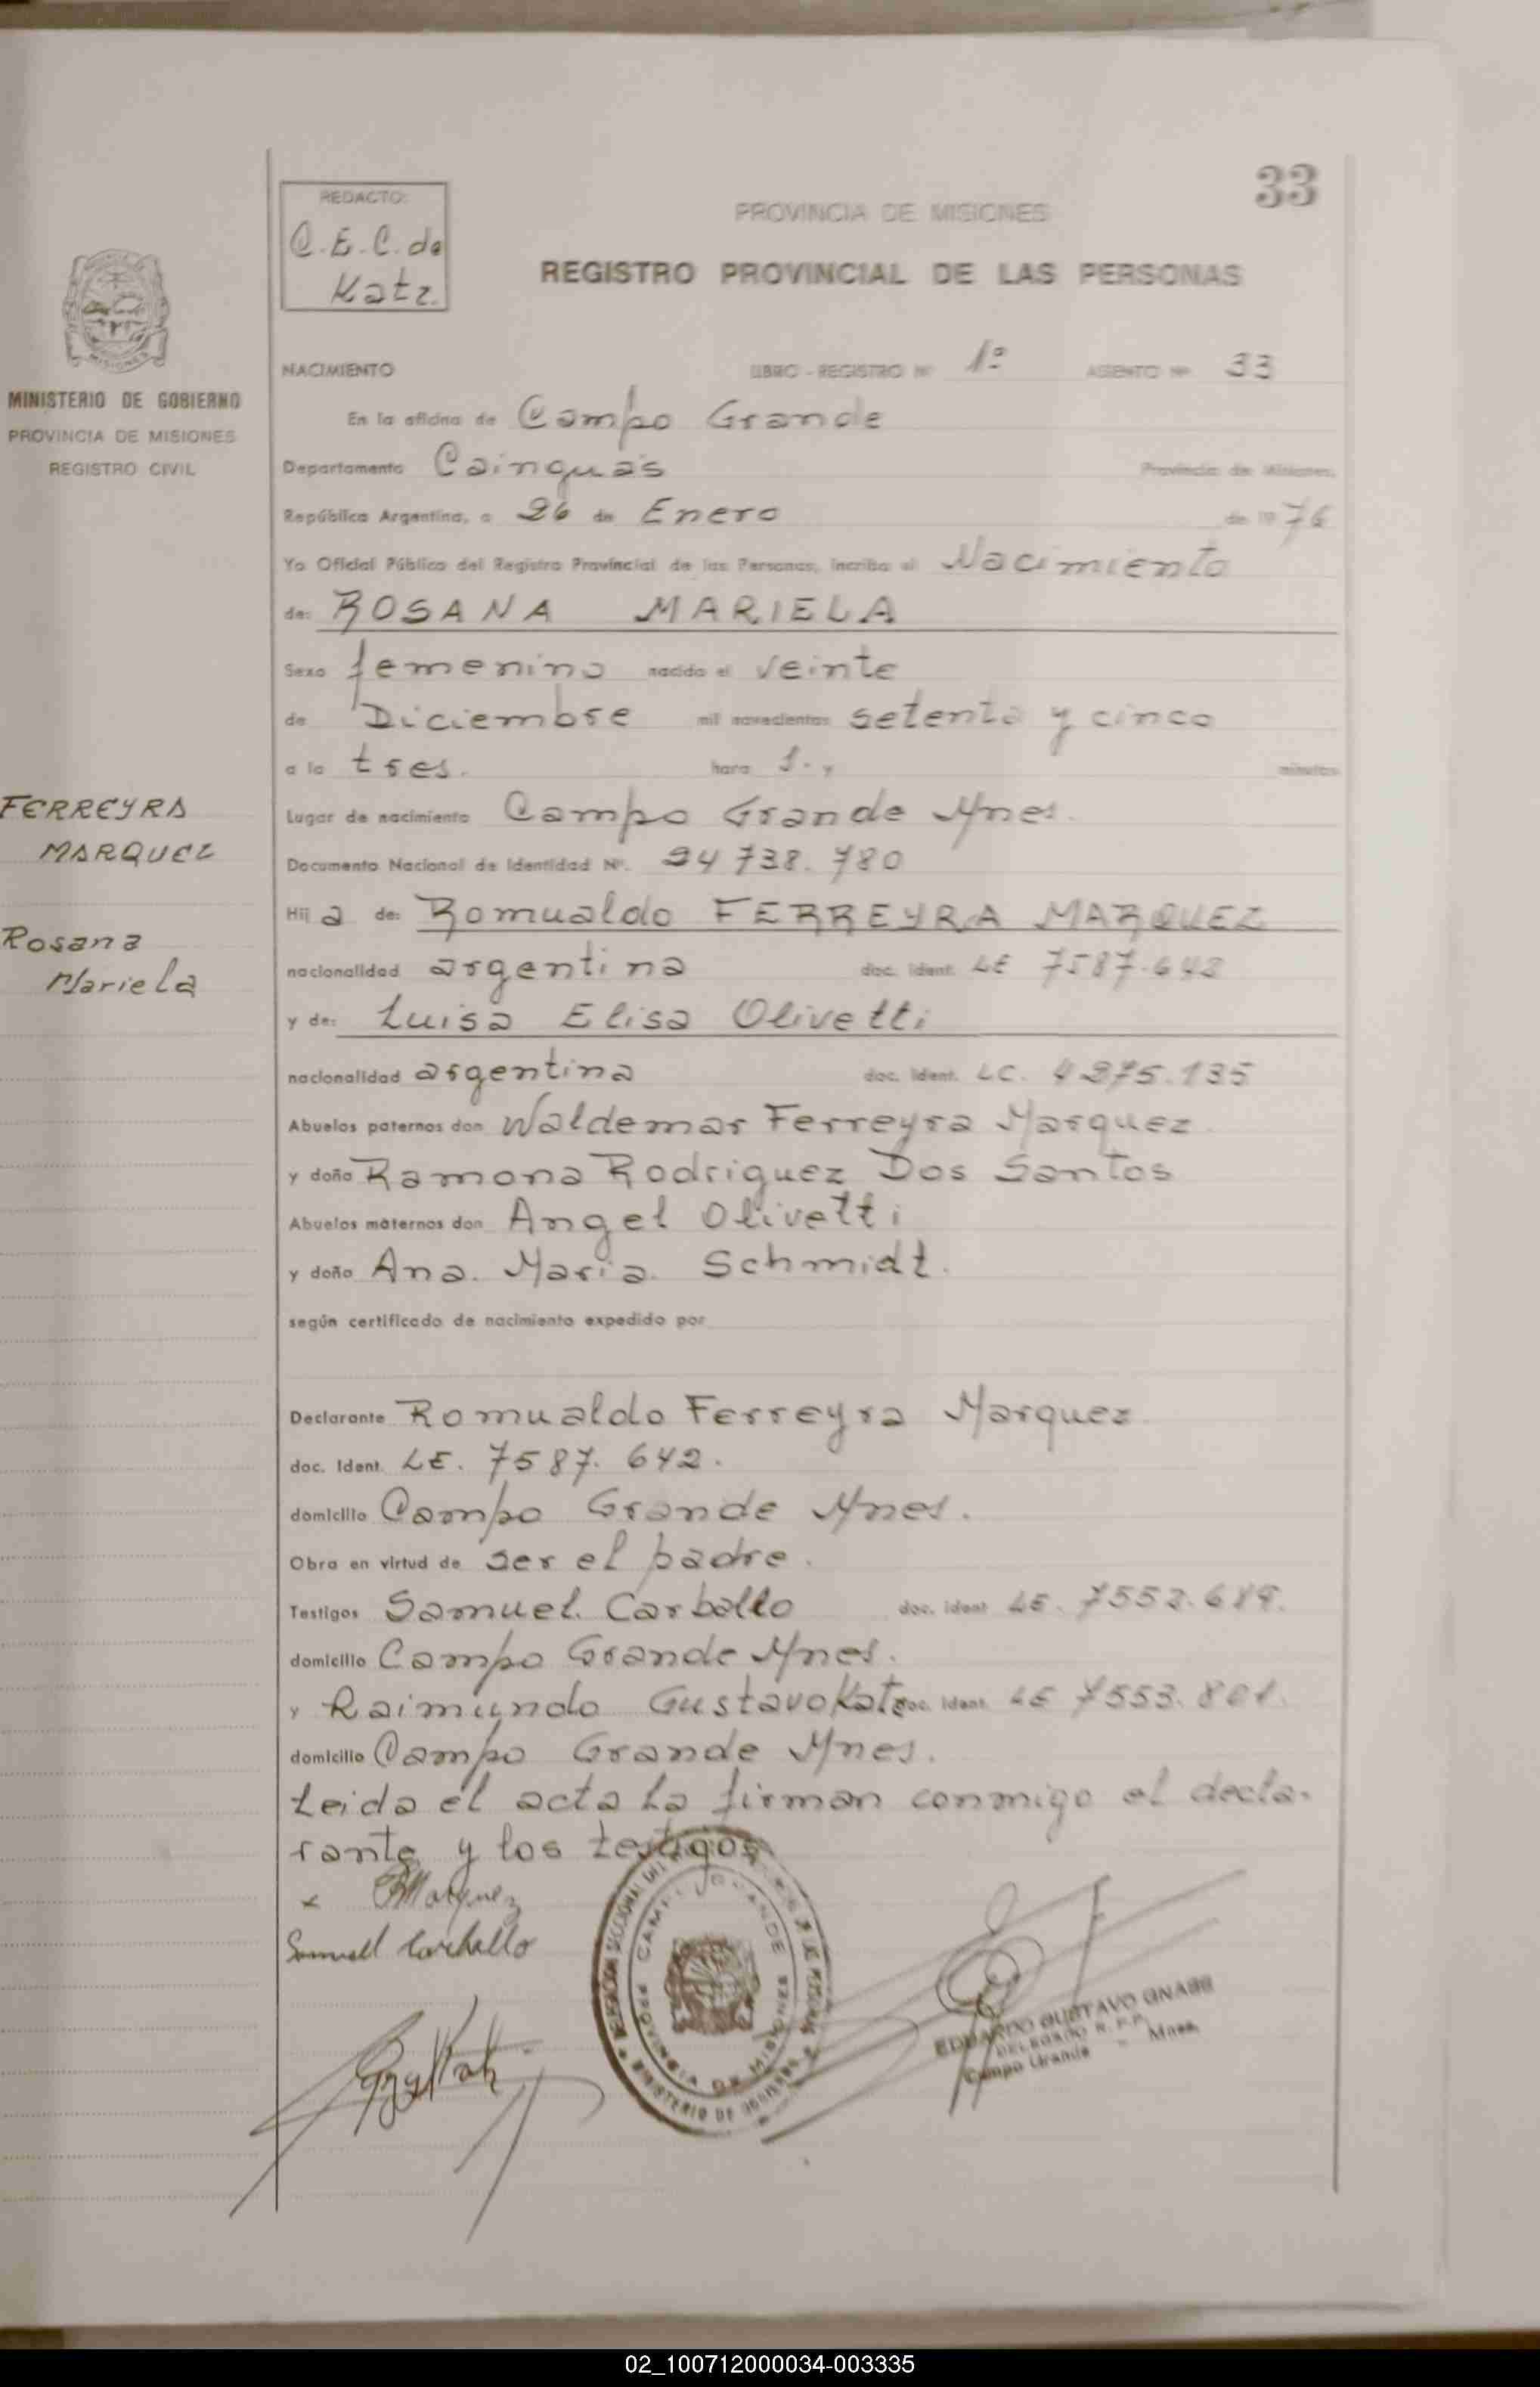 33
REDACTO:
C.E.C. de
Katz.
PROVINCIA DE MISIONES
REGISTRO PROVINCIAL DE LAS PERSONAS
MISIONES
MINISTERIO DE GOBIERNO
PROVINCIA DE MISIONES
REGISTRO CIVIL
NACIMIENTO LIBRO - REGISTRO Nº 1º ASIENTO Nº 33
En la oficina de Campo Grande
Departamento Cainguas Provincia de Misiones,
República Argentina, a 26 de Enero de 1976
Yo Oficial Público del Registro Provincial de las Personas, incribo el Nacimiento
de: ROSANA MARIELA
Sexo femenino nacido el veinte
de Diciembre mil novecientos setenta y cinco
a la tres. hora s. y minutos
Lugar de nacimiento Campo Grande Mnes.
FERREYRA
MARQUEZ
Rosana
Mariela
Documento Nacional de Identidad Nº. 24 738. 780
Hij a de: Romualdo FERREYRA MARQUEZ
nacionalidad argentina doc. Ident. LE 7587.642
y de: Luisa Elisa Olivetti
nacionalidad argentina doc. Ident. LC. 4275.135
Abuelos paternos don Waldemar Ferreyra Marquez
y doña Ramona Rodriguez Dos Santos
Abuelos maternos don Angel Olivetti
y doña Ana. Maria. Schmidt.
según certificado de nacimiento expedido por
Declarante Romualdo Ferreyra Marquez
doc. Ident. LE. 7587. 642.
domicilio Campo Grande Mnes.
Obra en virtud de ser el padre.
Testigos Samuel. Carballo doc. Ident. LE. 7552.689.
domicilio Campo Grande Mnes.
y Raimundo Gustavo Katz doc. Ident. LE 7553.801.
domicilio Campo Grande Mnes.
Leida el acta la firman conmigo el decla-
rante y los testigos
x Marquez
Samuel Carballo
CAMPO GRANDE
PROVINCIA DE MISIONES
MINISTERIO DE GOBIERNO
EDUARDO GUSTAVO GNASS
DELEGADO R. P. P.
Campo Grande - Mnes.
02_100712000034-003335